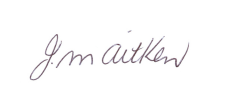 J. M Aitken